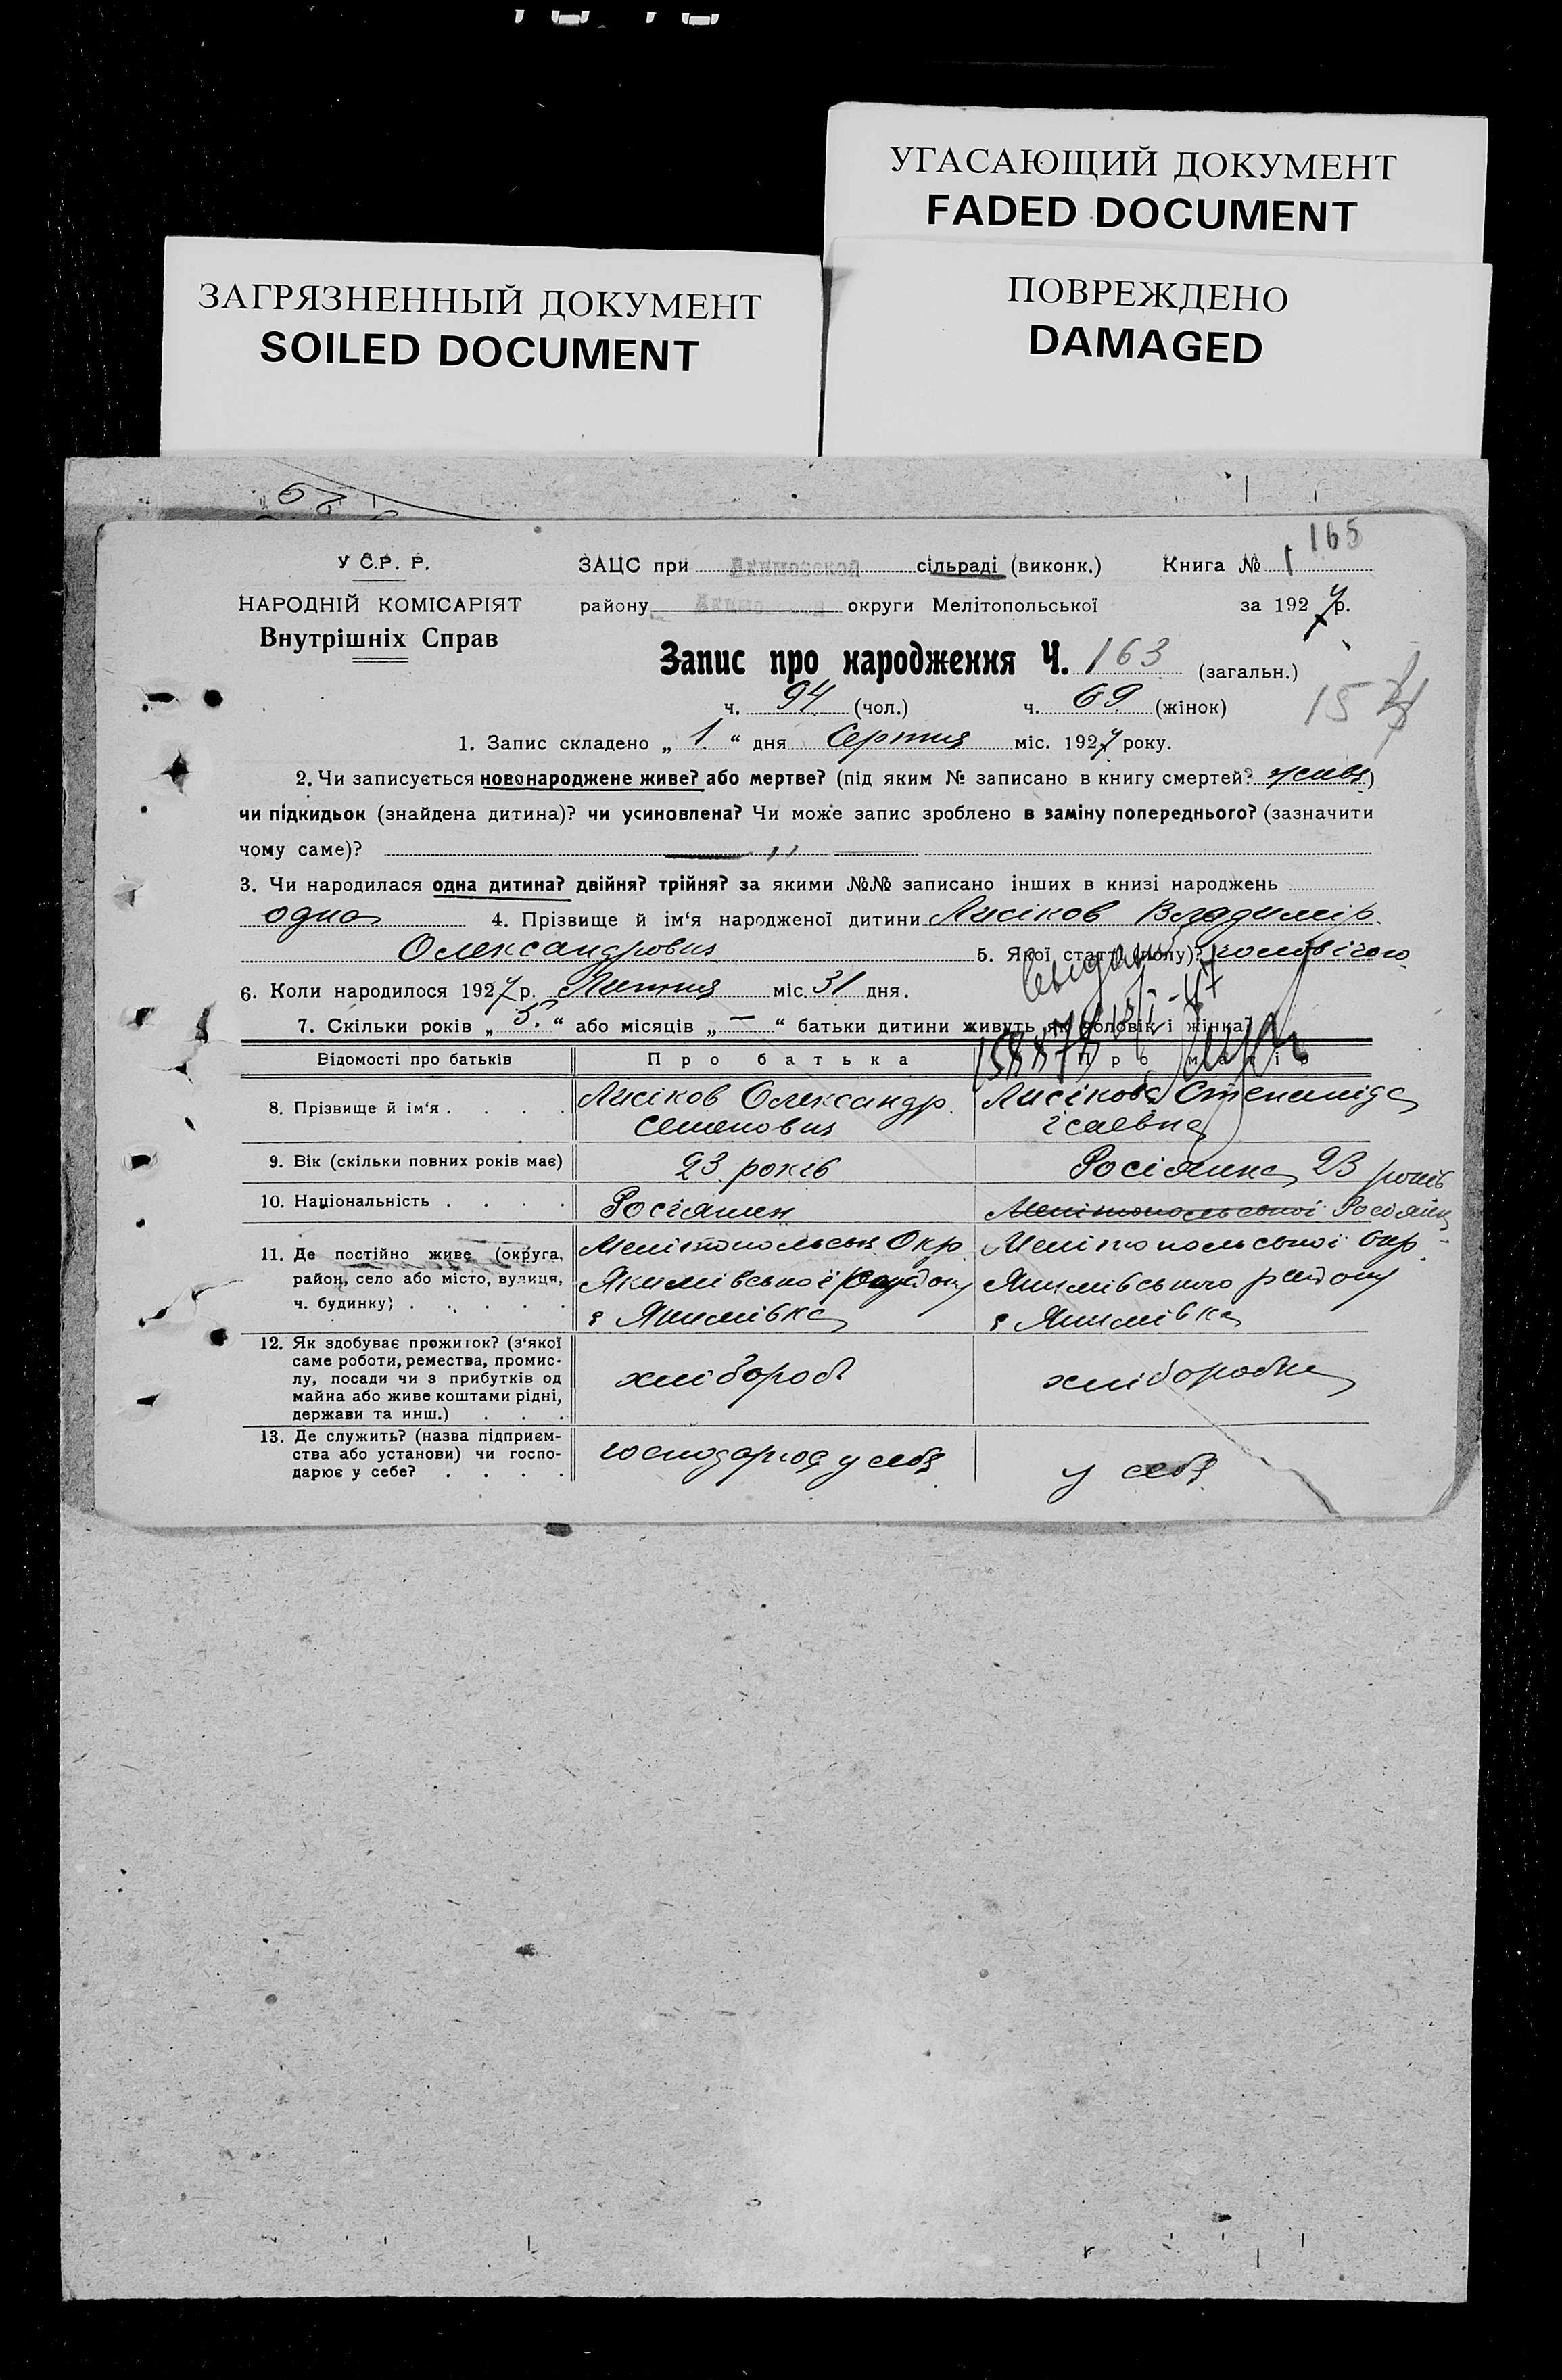 УГАСАЮЩИЙ ДОКУМЕНТ
FADED DOCUMENT
ЗАГРЯЗНЕННЫЙ ДОКУМЕНТ
SOILED DOCUMENT
ПОВРЕЖДЕНО
DAMAGED
165
У С.Р. Р.
НАРОДНІЙ КОМІСАРІЯТ
Внутрішніх Справ
ЗАЦС при Якимовской сільраді (виконк.) Книга № 1
району округи Мелітопольської за 1927 р.
Запис про народження Ч. 163 (загальн.)
ч. 94 (чол.) ч. 69 (жінок)
157
1. Запис складено „ 1 “ дня Серпня міс. 1927 року.
2. Чи записується новонароджене живе? або мертве? (під яким № записано в книгу смертей? живе)
чи підкидьок (знайдена дитина)? чи усиновлена? Чи може запис зроблено в заміну попереднього? (зазначити
чому саме)? — „ —
3. Чи народилася одна дитина? двійня? трійня? за якими №№ записано інших в книзі народжень
одна 4. Прізвище й ім‘я народженої дитини Лисіков Владимір
Олександрович 5. Якої статті (полу)? чоловічого
6. Коли народилося 1927 р. Липня міс. 31 дня.
7. Скільки років „ 5. “ або місяців „ — “ батьки дитини живуть, як чоловік і жінка?
Відомості про батьків Про батька Про матір
8. Прізвище й ім‘я . . . . Лисіков Олександр Семенович Лисікова Степаніда Ісаевна
9. Вік (скільки повних років має) 23 років Росіянка 23 років
10. Національність . . . . Росіянин Мелітопольської Росіянка
11. Де постійно живе (округа, район, село або місто, вулиця, ч. будинку) . . . . . Мелітопольськ Окр. Якимівської району с Якимівка Мелітопольської Окр. Якимівського району с Якимівка
12. Як здобуває прожиток? (з‘якої саме роботи, ремества, промислу, посади чи з прибутків од майна або живе коштами рідні, держави та инш.) . . . хлібороб хлібороб­ка
13. Де служить? (назва підприємства або установи) чи господарює у себе? . . . . господарює у себе у себе